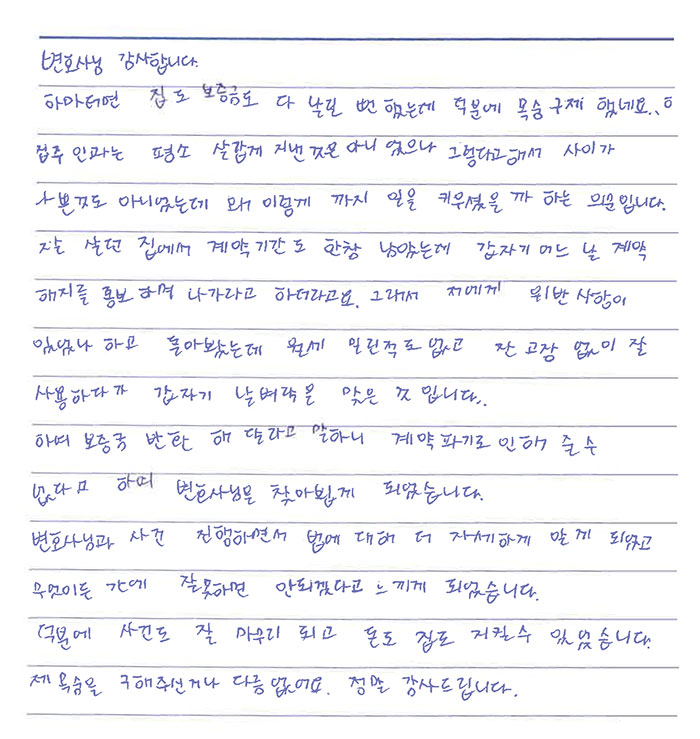 변호사님 감사합니다.
하마터면 집도 보증금도 다 날릴 뻔 했는데 덕분에 목숨 구제 했네요..ㅎ
집주인과는 평소 살갑게 지낸것은 아니 었으나 그렇다고해서 사이가
나쁜것도 아니었는데 왜 이렇게 까지 일을 키우셨을까 하는 의문입니다.
저는 살던 집에서 계약기간도 한창 남았는데 갑자기 어느 날 계약
해지를 통보하며 나가라고 하더라고요. 그래서 저에게 위반 사항이
있었나 하고 돌아봤는데 월세 밀린적도 없고 잔 고장 없이 잘
사용하다가 갑자기 날벼락을 맞은 것 입니다..
하여 보증금 반환 해 달라고 말하니 계약파기로 인해 줄 수
없다 하여 변호사님을 찾아뵙게 되었습니다.
변호사님과 사건 진행하면서 법에 대해 더 자세하게 알게 되었고
무엇이든 간에 잘못하면 안되겠다고 느끼게 되었습니다.
덕분에 사건도 잘 마무리 되고 돈도 집도 지킬수 있었습니다.
제 목숨을 구해주신거나 다름없어요. 정말 감사드립니다.